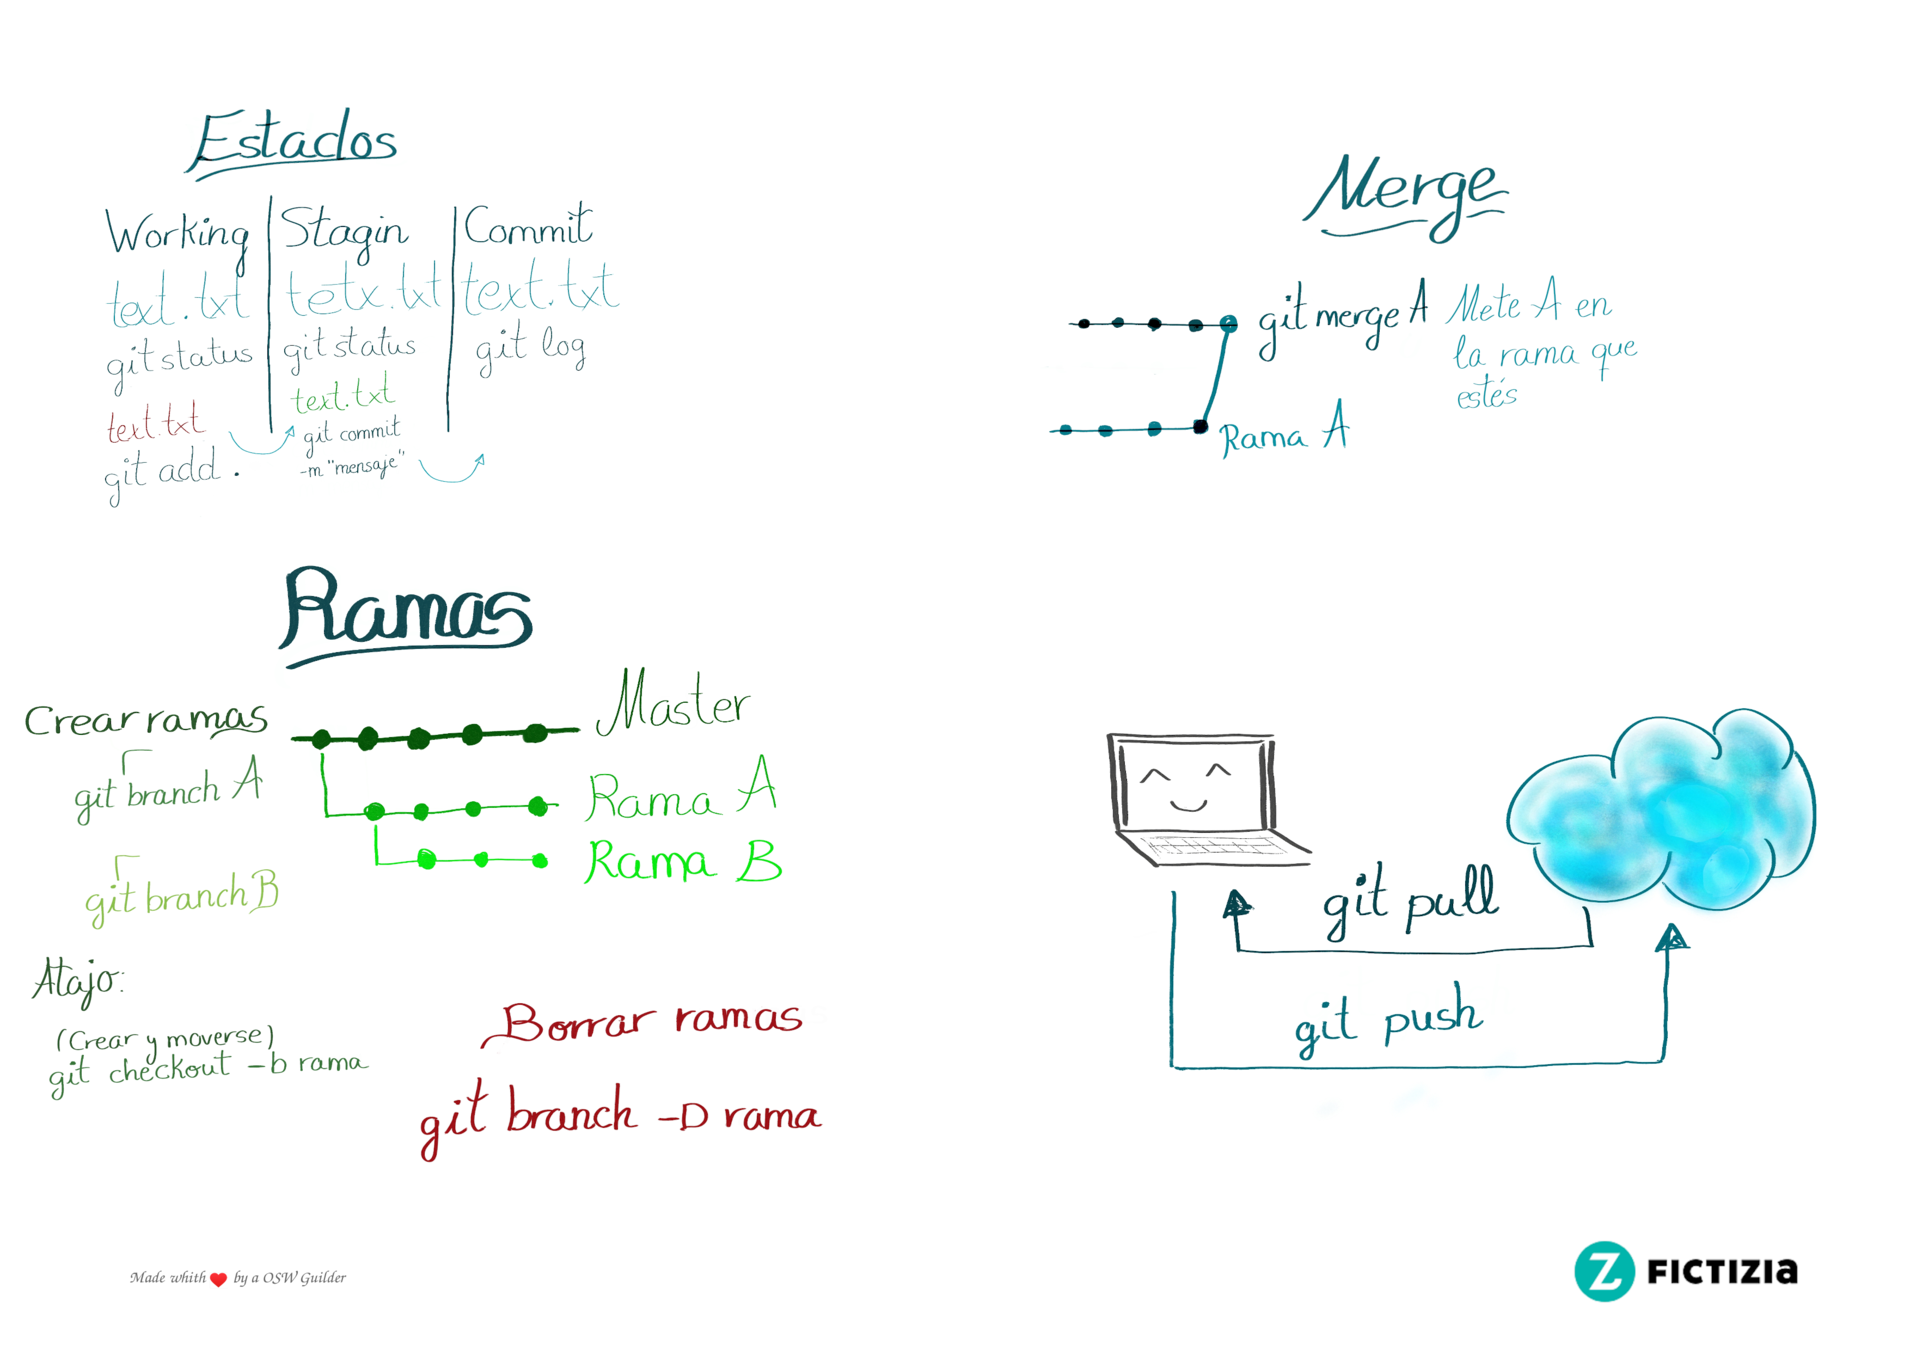 Estados
Working
text.txt
git status
text.txt
git add .
Stagin
tetx.txt
git status
text.txt
git commit
-m "mensaje"
Commit
text.txt
git log
Merge
git merge A
Mete A en
la rama que
estés
Rama A
Ramas
Crear ramas
git branch A
git branch B
Master
Rama A
Rama B
Atajo:
(Crear y moverse)
git checkout -b rama
Borrar ramas
git branch -D rama
git pull
git push
Made whith ❤ by a OSW Guilder
Z FICTIZIa